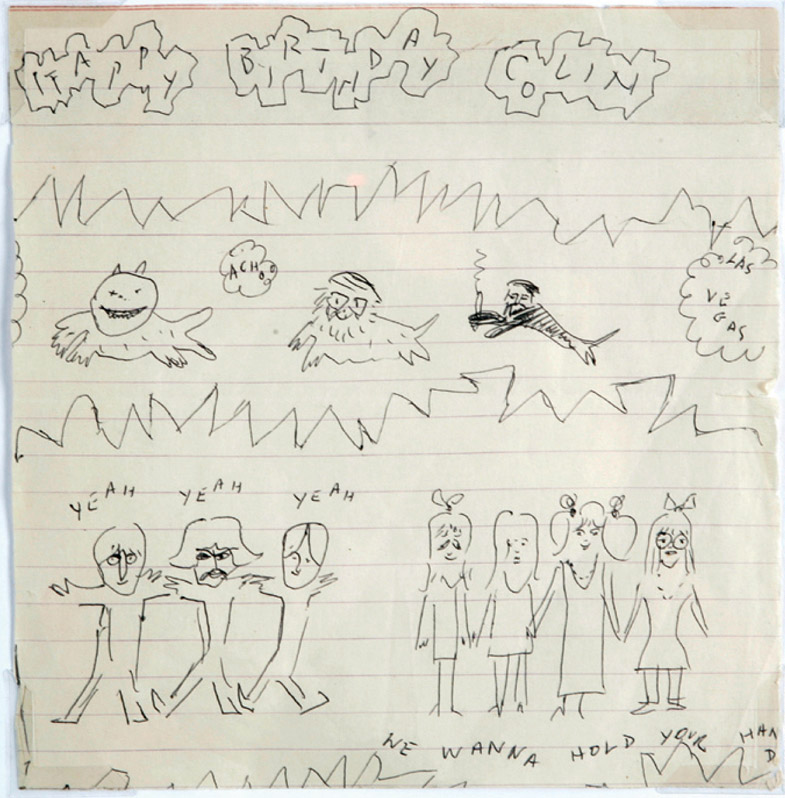 HAPPY BIRTHDAY COLIM
ACHOO
LAS
VE
GAS
YEAH YEAH YEAH
WE WANNA HOLD YOUR HAND